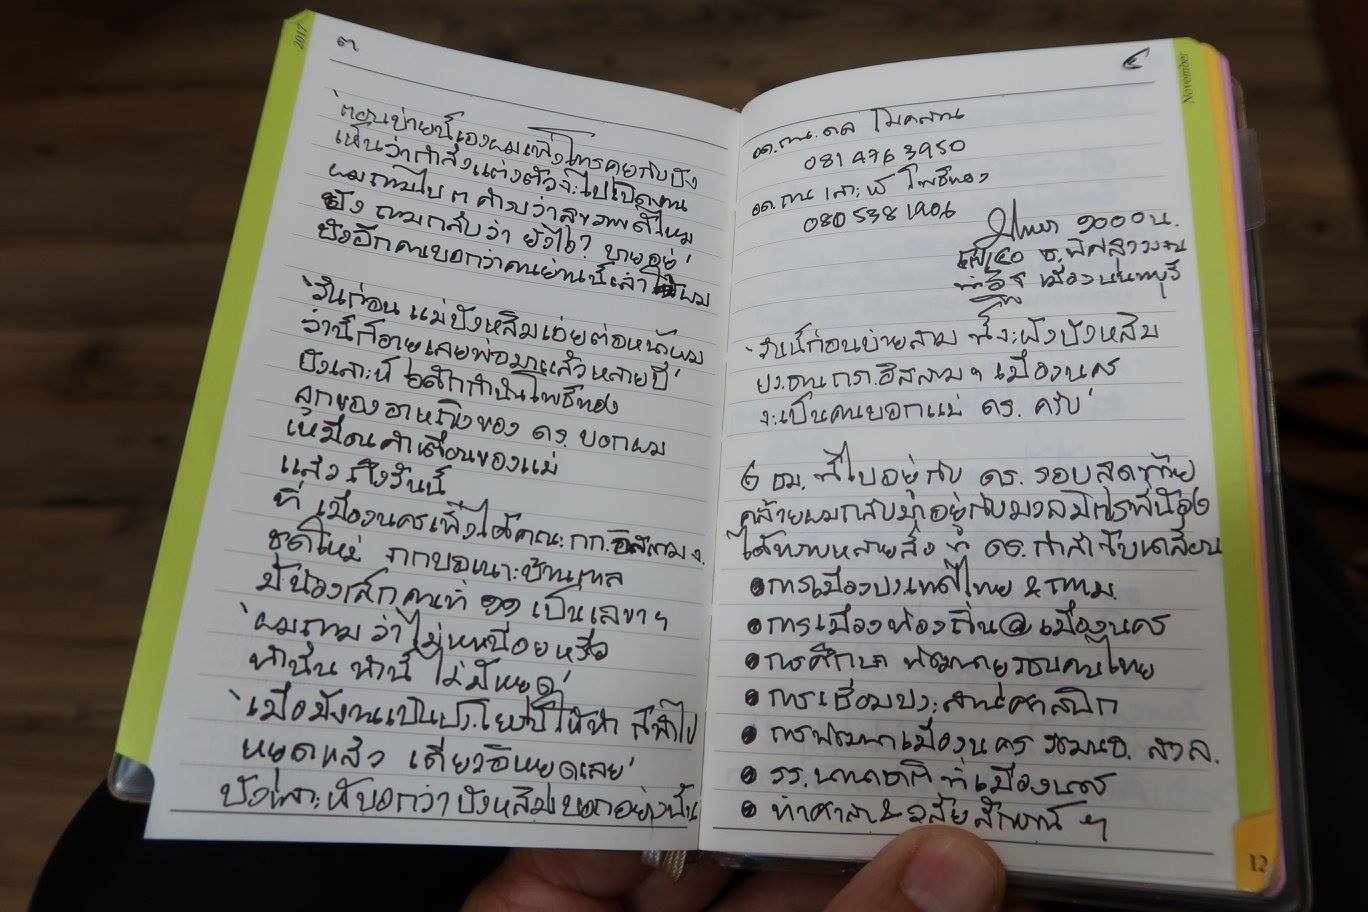 2017
๓
'ตอนบ่ายนี้เองผมเพิ่งโทรคุยกับบัง
เห็นว่ากำลังแต่งตัวจะไปเปิดงาน
ผมถามไป ๓ คำบว่าสุขภาพดีไหม
บัง ถามกลับว่า ยังไง? บายอยู่'
บังอีกคนบอกว่าคนย่านนี้เล่าให้ผม
'วันก่อน แม่บังหลีมเอ่ยต่อหน้าผม
ว่านี่ก็อายุเลยพ่อมาแล้วหลายปี'
บังเลาะห์ อดีตกำนันโพธิ์ทอง
ลูกของอาหญิงของ ดร. บอกผม
เหมือนคำเตือนของแม่
แล้วถึงวันนี้
ที่เมืองนครเพิ่งได้คณะกก.อิสลามจ.
ชุดใหม่ ภาคบอเนาะบ้านตาล
มีน้องเล็กคนที่ ๑๑ เป็นเลขาฯ
'ผมถามว่าไม่เหนื่อยหรือ
ทำนั่น ทำนี่ ไม่มีหยุด'
'เมื่อมีงานเป็นประโยชน์ให้ทำ ก็ทำไป
หยุดแล้ว เดี๋ยวอิหยุดเลย'
บังเลาะห์บอกว่าบังหลีมบอกอย่างนั้น
November
๔
อด.กน. ดล โมคลาน
081 476 3950
อด.กน เลาะห์ โพธิ์ทอง
080 538 1906
๑๐๐๐ น.
เมืองนนทบุรี
'วันนี้ก่อนบ่ายสาม นี้จะฝังบังหลีม
ปธ.กก.อิสลามฯ เมืองนคร
จะเป็นคนบอกแม่ ดร. ครับ'
๖ ชม. ที่ไปอยู่กับ ดร. รอบสุดท้าย
คล้ายผมกลับมาอยู่กับมวลมิตรพี่น้อง
ได้ทราบหลายสิ่ง ที่ ดร. กำลังขับเคลื่อน
• การเมืองประเทศไทย & กทม.
• การเมืองท้องถิ่น@เมืองนคร
• การศึกษา พัฒนาเยาวชนคนไทย
• การเชื่อมประสานศาสนิก
• การพัฒนาเมืองนคร วัฒนธ. สวล.
• รร. นานาชาติ ที่เมืองนคร
• ท่าศาลา & วลัยลักษณ์ ฯ
12